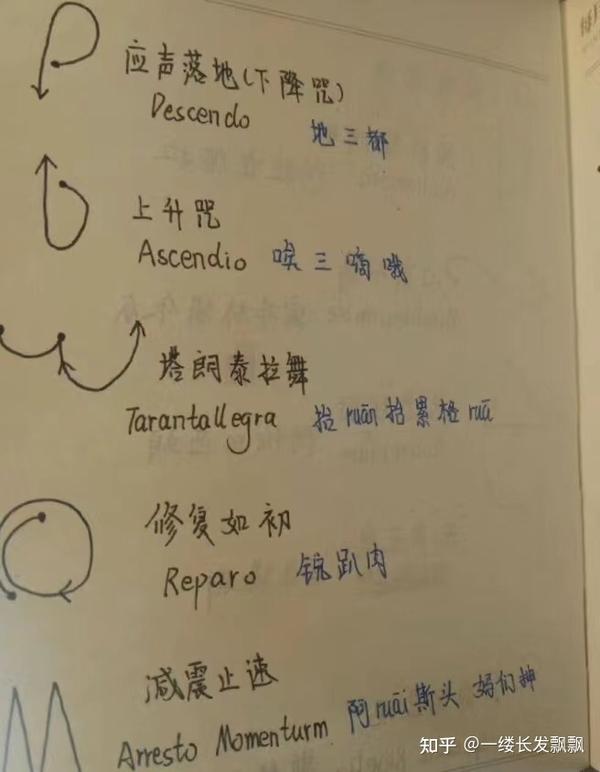 应声落地(下降咒)
Descendo 地三都
上升咒
Ascendio 唉三嘀哦
塔朗泰拉舞
Tarantallegra 抬ruān抬累格ruā
修复如初
Reparo 锐趴肉
减震止速
Arresto Momenturm 阿ruāi斯头 妈们神
知乎 @一缕长发飘飘